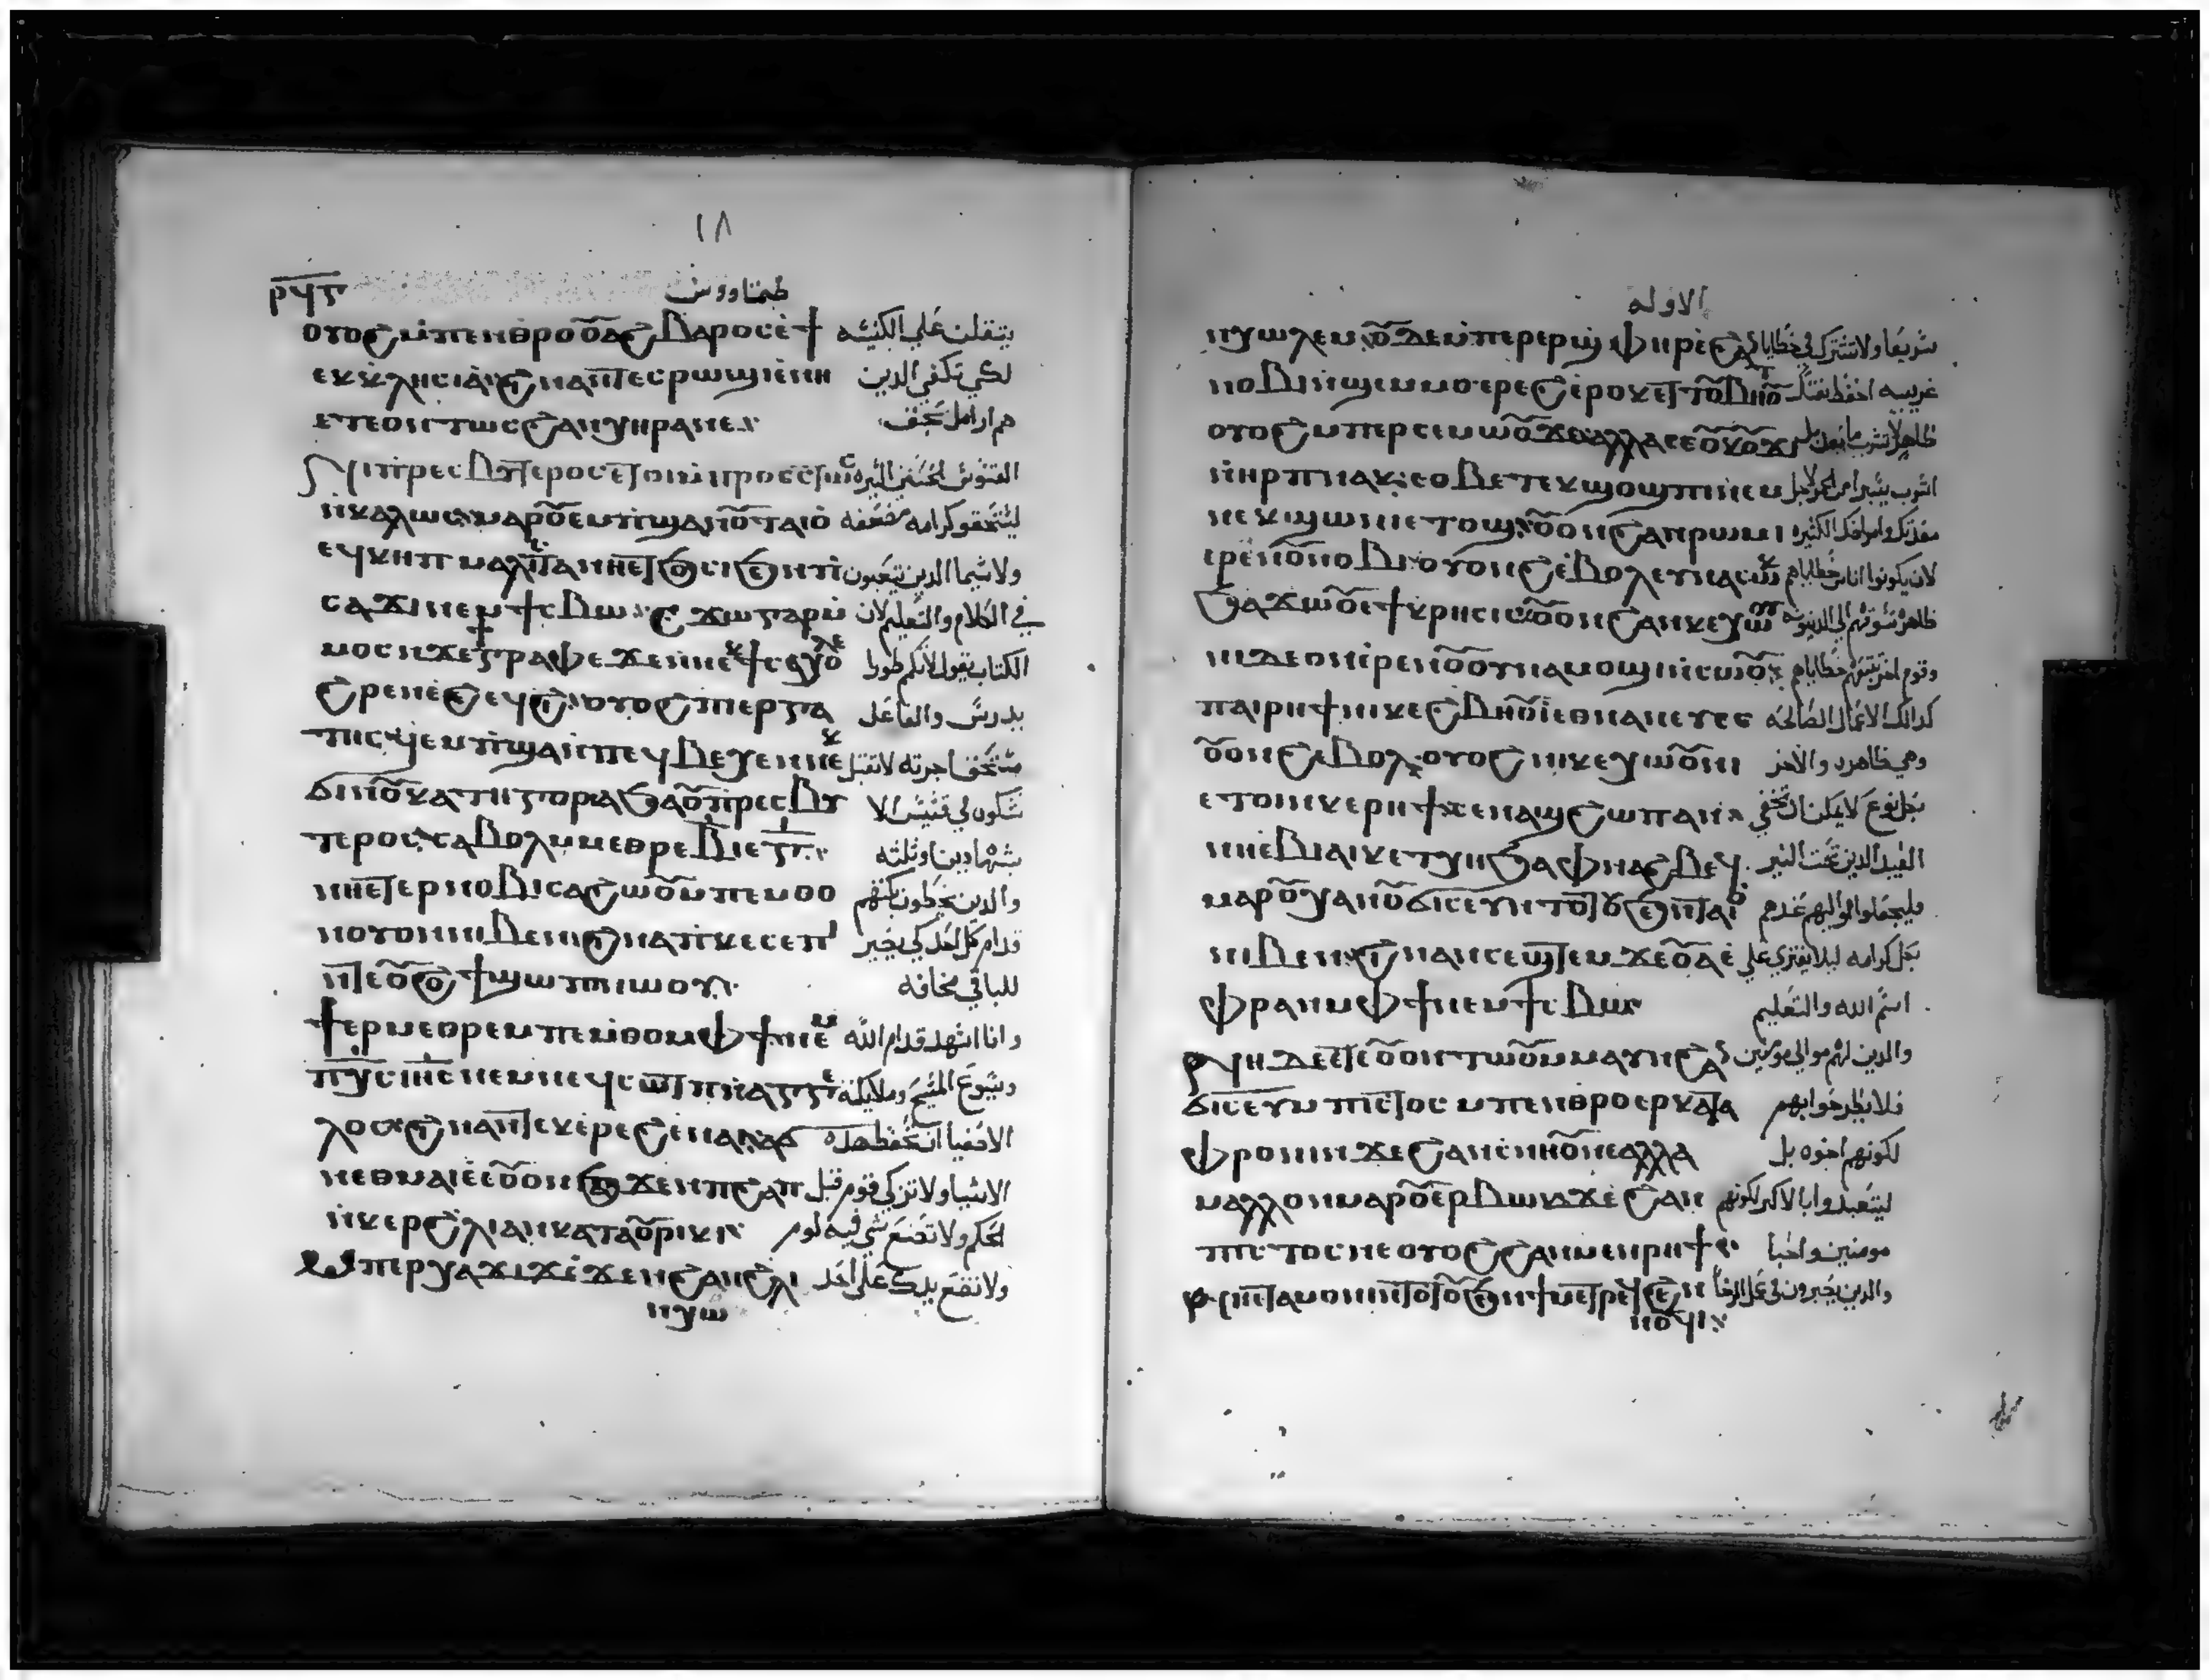 ١٨
ⲣϥⲋ طيماتاووس
ⲟⲩⲟϩ ⲙ̀ⲡⲉⲛⲑⲣⲟⲩⲟⲩⲁϩⲃⲁⲣⲟⲥ ⲉ̀ϯ يتقلن علي الكنيسه
ⲉⲕⲕⲗⲏⲥⲓⲁ ϩⲓⲛⲁ ⲛ̀ⲧⲉⲥⲣⲱϣⲓ ⲉ̀ⲛⲏ لكي تكفي الدين
ⲉⲧⲉ ⲟⲛⲧⲱⲥ ϩⲁⲛⲭⲏⲣⲁ ⲛⲉ هم ارامل بحق
ⲛⲓⲡⲣⲉⲥⲃⲩⲧⲉⲣⲟⲥ ⲉⲧⲟⲓ ⲙ̀ⲡⲣⲟⲉⲥⲧⲱⲥ القسوس الحسنين السيره
ⲛ̀ⲕⲁⲗⲱⲥ ⲙⲁⲣⲟⲩⲉⲙⲡϣⲁ ⲛ̀ⲟⲩⲧⲁⲓⲟ̀ ليستحقو كرامه مضعفه
ⲉϥⲕⲏⲡ ⲙⲁⲗⲓⲥⲧⲁ ⲛⲏⲉⲧϭⲓϧⲓⲥⲓ ϧⲉⲛ ⲡ ولاسيما الدين يتعبون
ⲥⲁϫⲓ ⲛⲉⲙ ϯⲥⲃⲱ ϥϫⲱ ⲅⲁⲣ ⲙ̀ في الكلام والتعليم لان
ⲙⲟⲥ ⲛ̀ϫⲉ ϯⲅⲣⲁⲫⲏ ϫⲉ ⲛ̀ⲛⲉⲕϯⲥⲁϫⲟⲗ ⲉ̀ الكتاب يقول لاتكم طورا
ϩⲣⲉⲛ ⲉ̀ϩⲉ ⲉϥϩⲓ ⲟⲩⲟϩ ⲡⲉⲣⲅⲁ يدرس والفاعل
ⲧⲏⲥ ϥⲉⲙⲡϣⲁ ⲙ̀ⲡⲉϥⲃⲉⲭⲉ ⲛ̀ⲛⲉⲕ مستحق اجرته لا تقبل
ϭⲓ ⲛ̀ⲟⲩⲕⲁⲧⲏⲅⲟⲣⲓⲁ ϧⲁ ⲟⲩⲡⲣⲉⲥⲃⲩ شكوه في قسيس الا
ⲧⲉⲣⲟⲥ ⲥⲁⲃⲟⲗ ⲙ̀ⲙⲉⲑⲣⲉ ⲃ̅ ⲓⲉ ⲅ̅ بشهادين او ثلثه
ⲛⲏⲉⲧⲉⲣⲛⲟⲃⲓ ⲥⲁϩⲱⲟⲩ ⲙ̀ⲡⲉⲙⲑⲟ والدين يخطون بكتهم
ⲛ̀ⲟⲩⲟⲛ ⲛⲓⲃⲉⲛ ϩⲓⲛⲁ ⲡⲕⲉⲥⲉⲡⲓ قدام كل احد كي يصير
ⲛ̀ⲧⲉ ⲟⲩϩⲟϯ ϣⲱⲡⲓ ⲛⲱⲟⲩ للباقي مخافه
ϯⲉⲣⲙⲉⲑⲣⲉ ⲙ̀ⲡⲉⲙⲑⲟ ⲙ̀ⲫϯ ⲛⲉⲙ وانا اشهد قدام الله
ⲡⲭ̅ⲥ ⲓⲏ̅ⲥ ⲛⲉⲙ ⲛⲉϥⲥⲱⲧⲡ ⲛ̀ⲁⲅⲅⲉ ويسوع المسيح وملايكته
ⲗⲟⲥ ϩⲓⲛⲁ ⲛ̀ⲧⲉⲕⲁ̀ⲣⲉϩ ⲉ̀ⲛⲁⲓ الاصفيا ان تحفظ هده
ⲛⲉⲑⲙⲁⲓⲉ̀ ⲉ̀ⲟⲩⲟⲛ ϧⲁϫⲉⲛ ⲡϩⲁⲡ الاشيا ولا تزكي قوم قبل
ⲛ̀ⲕⲉⲣ ϩⲗⲓ ⲁⲛ ⲕⲁⲧⲁ ⲟⲩⲣⲓⲕⲓ الحكم ولا تصنع شي فيه لوم
ⲙ̀ⲡⲉⲣⲭⲁ ϫⲓϫ ⲉ̀ϫⲉⲛ ϩⲗⲓ ولا تضع يدك علي احد
ⲛ̀ⲭⲱ
الاوله
ⲛ̀ⲭⲱⲗⲉⲙ ⲟⲩⲇⲉ ⲙ̀ⲡⲉⲣⲉⲣϣⲫⲏⲣ ⲉ̀ϩⲁⲛ سريعا ولا تشترك في خطايا
ⲛⲟⲃⲓ ⲛ̀ϣⲉⲙⲙⲟ ⲁ̀ⲣⲉϩ ⲉ̀ⲣⲟⲕ ⲉⲕⲧⲟⲩⲃⲏⲟⲩⲧ غريبه احفظ نفسك
ⲟⲩⲟϩ ⲙ̀ⲡⲉⲣⲥⲉ ⲙⲱⲟⲩ ϫⲉ ⲁⲗⲗⲁ ⲥⲉ ⲟⲩⲕⲟⲩϫⲓ طاهر لا تشرب ما بعد بل
ⲛ̀ⲏⲣⲡ ⲛⲁⲕ ⲉⲑⲃⲉ ⲡⲉⲕϣⲟϣⲡⲓ ⲛⲉⲙ اشرب يسيرا من الخمر لاجل
ⲛⲉⲕϣⲱⲛⲓ ⲉⲧⲟϣ ⲟⲩⲟⲛ ϩⲁⲛⲣⲱⲙⲓ معدتك وامراضك الكثيره
ⲉ̀ⲣⲉ ⲛⲟⲩⲛⲟⲃⲓ ⲟⲩⲟⲛϩ ⲉ̀ⲃⲟⲗ ⲉⲩⲛⲁⲥⲱⲕ لان يكونوا اناس خطاياهم
ϧⲁϫⲱⲟⲩ ⲉ̀ϯⲕⲣⲓⲥⲓⲥ ⲟⲩⲟⲛ ϩⲁⲛⲕⲉⲭⲱⲟⲩ طاهره تسوقهم الي الدينونه
ⲛⲓ ⲇⲉ ⲟⲛ ⲉ̀ⲣⲉ ⲛⲟⲩⲟⲩ ⲛⲁⲙⲟϣⲓ ⲛ̀ⲥⲱⲟⲩ وقوم اخر تتبعهم خطاياهم
ⲡⲁⲓⲣⲏϯ ⲛⲓⲕⲉϩⲃⲏⲟⲩⲓ̀ ⲉⲑⲛⲁⲛⲉⲩ ⲥⲉ كدالك الاعمال الصالحه
ⲟⲩⲟⲛϩ ⲉ̀ⲃⲟⲗ ⲟⲩⲟϩ ⲛⲓⲕⲉⲭⲱⲟⲩⲛⲓ وهي ظاهره والاخر
ⲉⲧⲟⲓ ⲛ̀ⲕⲉⲣⲏϯ ⲥⲉⲛⲁϣϩⲱⲡ ⲁⲛ بكل نوع لا يمكن ان تخفي
ⲛⲏ ⲉ̀ⲃⲓⲁⲓⲕ ⲉⲧⲭⲏ ϧⲁ ⲫⲛⲁϩⲃⲉϥ العبيد الدين تحت النير
ⲙⲁⲣⲟⲩⲭⲁ ⲛⲟⲩϭⲓⲥⲉⲩ ⲛ̀ⲧⲟⲧⲟⲩ ϧⲉⲛ ⲧⲁⲓⲟ فليجعلوا مواليهم عندهم
ⲛⲓⲃⲉⲛ ϩⲓⲛⲁ ⲛ̀ⲥⲉϣⲧⲉⲙϫⲉⲟⲩⲁ ⲉ̀ بكل كرامه ليلا يفتري علي
ⲫⲣⲁⲛ ⲙ̀ⲫϯ ⲛⲉⲙ ϯⲥⲃⲱ اسم الله والتعليم
ⲛⲏ ⲇⲉ ⲉⲧⲉ ⲟⲩⲟⲛⲧⲱⲟⲩ ⲙ̀ⲙⲁⲩ ⲛ̀ϩⲁⲛ والدين لهم موالي مومنين
ϭⲓⲥⲉⲩ ⲙ̀ⲡⲓⲥⲧⲟⲥ ⲙ̀ⲡⲉⲛⲑⲣⲟⲩⲉⲣⲕⲁⲧⲁ فلا يظهر هوانهم
ⲫⲣⲟⲛⲓⲛ ϫⲉ ϩⲁⲛⲥⲛⲏⲟⲩ ⲛⲉ ⲁⲗⲗⲁ لكونهم اخوه بل
ⲙⲁⲗⲗⲟⲛ ⲙⲁⲣⲟⲩⲉⲣⲃⲱⲕ ϫⲉ ϩⲁⲛ ليتعبدوا بالاكثر لكونهم
ⲡⲓⲥⲧⲟⲥ ⲛⲉ ⲟⲩⲟϩ ϩⲁⲛⲙⲉⲛⲣⲁϯ مومنين واحبا
ⲛⲏⲉⲧⲁⲙⲟⲛⲓ ⲛ̀ⲧⲟⲧⲟⲩ ϧⲉⲛ ϯⲙⲉⲧⲣⲉϥⲉⲣ والدين يصبرون في عمل
ⲛⲟϥⲣⲓ